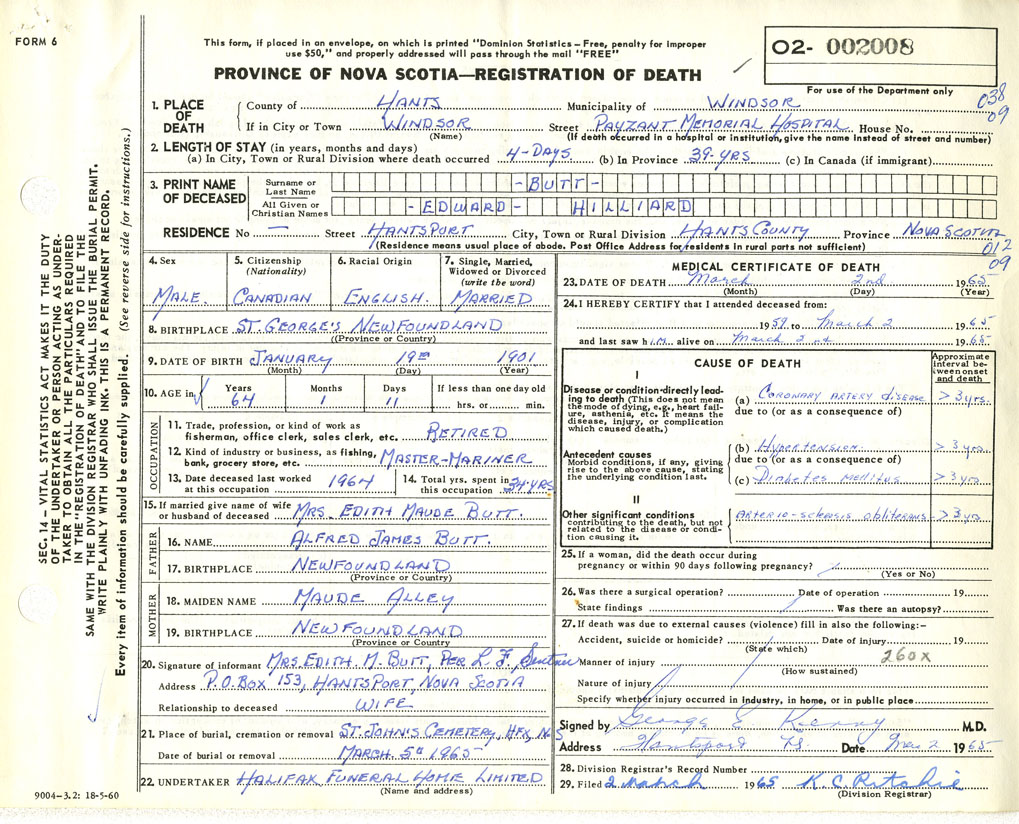 FORM 6
This form, if placed in an envelope, on which is printed "Dominion Statistics – Free, penalty for improper
use $50," and properly addressed will pass through the mail "FREE"
PROVINCE OF NOVA SCOTIA—REGISTRATION OF DEATH
02- 002008
For use of the Department only
038
09
1. PLACE OF DEATH
County of HANTS Municipality of WINDSOR
If in City or Town WINDSOR Street PAYZANT MEMORIAL HOSPITAL House No.
(Name) (If death occurred in a hospital or institution, give the name instead of street and number)
2. LENGTH OF STAY (in years, months and days)
(a) In City, Town or Rural Division where death occurred 4-DAYS (b) In Province 39-YRS (c) In Canada (if immigrant)
3. PRINT NAME OF DECEASED
Surname or Last Name -BUTT-
All Given or Christian Names -EDWARD- HILLIARD
RESIDENCE No — Street HANTSPORT City, Town or Rural Division HANTS COUNTY Province NOVA SCOTIA
(Residence means usual place of abode. Post Office Address for residents in rural parts not sufficient)
012
09
4. Sex MALE.
5. Citizenship (Nationality) CANADIAN
6. Racial Origin ENGLISH.
7. Single, Married, Widowed or Divorced (write the word) MARRIED
8. BIRTHPLACE ST. GEORGE'S NEWFOUNDLAND
(Province or Country)
9. DATE OF BIRTH JANUARY 19TH 1901
(Month) (Day) (Year)
10. AGE in Years 64 Months 1 Days 11 If less than one day old hrs. or min.
OCCUPATION
11. Trade, profession, or kind of work as
fisherman, office clerk, sales clerk, etc. RETIRED
12. Kind of industry or business, as fishing,
bank, grocery store, etc. MASTER-MARINER
13. Date deceased last worked
at this occupation 1964
14. Total yrs. spent in
this occupation 34-YRS
15. If married give name of wife
or husband of deceased MRS. EDITH MAUDE BUTT.
FATHER
16. NAME ALFRED JAMES BUTT.
17. BIRTHPLACE NEWFOUNDLAND
(Province or Country)
MOTHER
18. MAIDEN NAME MAUDE ALLEY
19. BIRTHPLACE NEWFOUNDLAND
(Province or Country)
20. Signature of informant MRS. EDITH M. BUTT, PER L. F.
Address P.O. BOX 153, HANTSPORT, NOVA SCOTIA
Relationship to deceased WIFE
21. Place of burial, cremation or removal ST. JOHN'S CEMETERY, HFX, N S
Date of burial or removal MARCH 5TH 1965
22. UNDERTAKER HALIFAX FUNERAL HOME LIMITED
(Name and address)
MEDICAL CERTIFICATE OF DEATH
23. DATE OF DEATH March 2nd 1965
(Month) (Day) (Year)
24. I HEREBY CERTIFY that I attended deceased from:
1959 to March 2 1965
and last saw h im alive on March 2nd 1965
CAUSE OF DEATH
Approximate interval between onset and death
I
Disease or condition directly leading to death (This does not mean the mode of dying, e.g., heart failure, asthenia, etc. It means the disease, injury, or complication which caused death.)
(a) Coronary artery disease > 3 yrs.
due to (or as a consequence of)
Antecedent causes
Morbid conditions, if any, giving rise to the above cause, stating the underlying condition last.
(b) Hypertension > 3 yrs.
due to (or as a consequence of)
(c) Diabetes mellitus > 3 yrs.
II
Other significant conditions
contributing to the death, but not related to the disease or condition causing it.
Arterio-sclerosis obliterans > 3 yrs
25. If a woman, did the death occur during
pregnancy or within 90 days following pregnancy?
(Yes or No)
26. Was there a surgical operation? Date of operation 19
State findings Was there an autopsy?
27. If death was due to external causes (violence) fill in also the following:-
Accident, suicide or homicide? Date of injury 19
(State which)
260X
Manner of injury
(How sustained)
Nature of injury
Specify whether injury occurred in Industry, in home, or in public place
Signed by George E Kenny M.D.
Address Hantsport N.S. Date Mar 2 1965
28. Division Registrar's Record Number
29. Filed 2 March 1965 K. C. Ritchie
(Division Registrar)
SEC. 14 – VITAL STATISTICS ACT MAKES IT THE DUTY
OF THE UNDERTAKER OR PERSON ACTING AS UNDERTAKER
TO OBTAIN ALL THE PARTICULARS REQUIRED
IN THE "REGISTRATION OF DEATH" AND TO FILE THE
SAME WITH THE DIVISION REGISTRAR WHO SHALL ISSUE THE BURIAL PERMIT.
WRITE PLAINLY WITH UNFADING INK. THIS IS A PERMANENT RECORD.
Every item of information should be carefully supplied. (See reverse side for instructions.)
9004-3.2: 18-5-60